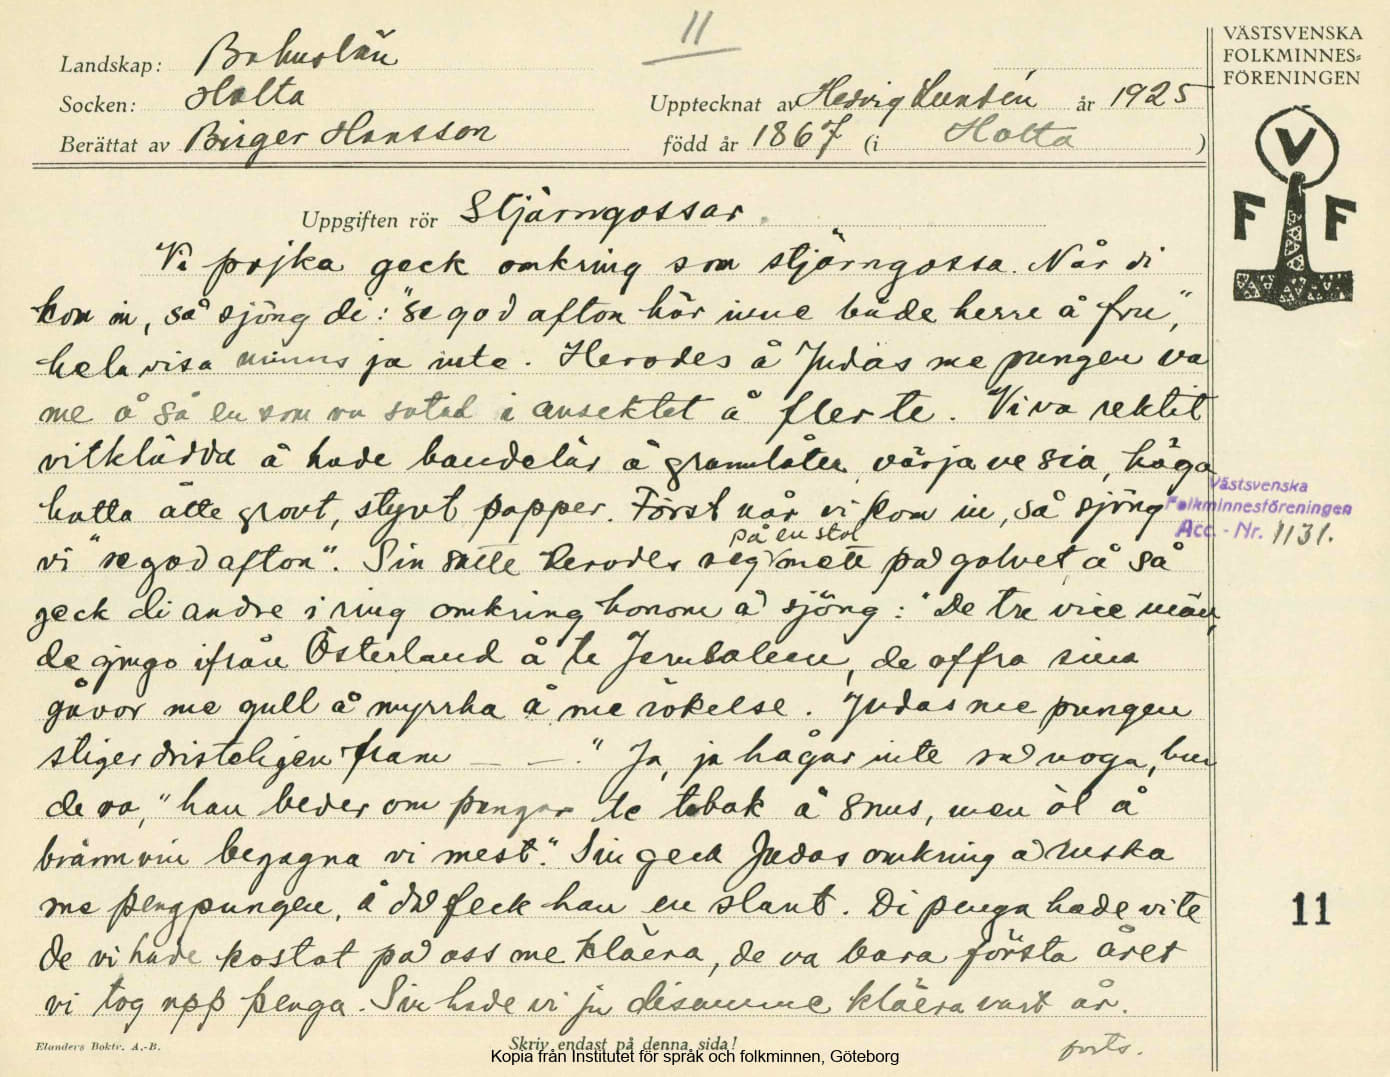 11
Landskap: Bohuslän
Socken: Holta
Upptecknat av Hedvig Lundén år 1925
Berättat av Birger Hansson
född år 1867 (i Holta )
VÄSTSVENSKA
FOLKMINNES=
FÖRENINGEN
V
F F
Uppgiften rör Stjärngossar.
Vi pojka geck omkring som stjärngossa. När di
kom in, så sjöng di: "se god afton här inne både herre å fru",
hela visa minns ja inte. Herodes å Judas me pungen va
me å så en som va sotad i ansektet å fler te. Vi va rektit
vitklädda å hade bandelär å grannlåter, värja ve sia, höga
hatta åtte grovt, styvt papper. Först når vi kom in, så sjöng
vi "se god afton". Sin satte Herodes seg på en stol mett på golvet, å så
geck di andre i ring omkring honom å sjöng: "De tre vise män,
de gingo ifrån Österland å te Jerusalem, de offra sina
gåvor me gull å myrrha å me rökelse. Judas me pungen
stiger dristeligen fram — —." Ja, ja hågar inte så noga, hur
de va, "han beder om pengar te tobak å snus, men öl å
brännvin begagna vi mest." Sin geck Judas omkring å ruska
me pengpungen, å då feck han en slant. Di penga hade vi te
de vi hade kostat på oss me kläera, de va bara första året
vi tog upp penga. Sin hade vi ju disamme kläera vart år.
forts.
Västsvenska
Folkminnesföreningen
Acc. - Nr. 1131.
11
Elanders Boktr. A.-B.
Skriv endast på denna sida!
Kopia från Institutet för språk och folkminnen, Göteborg